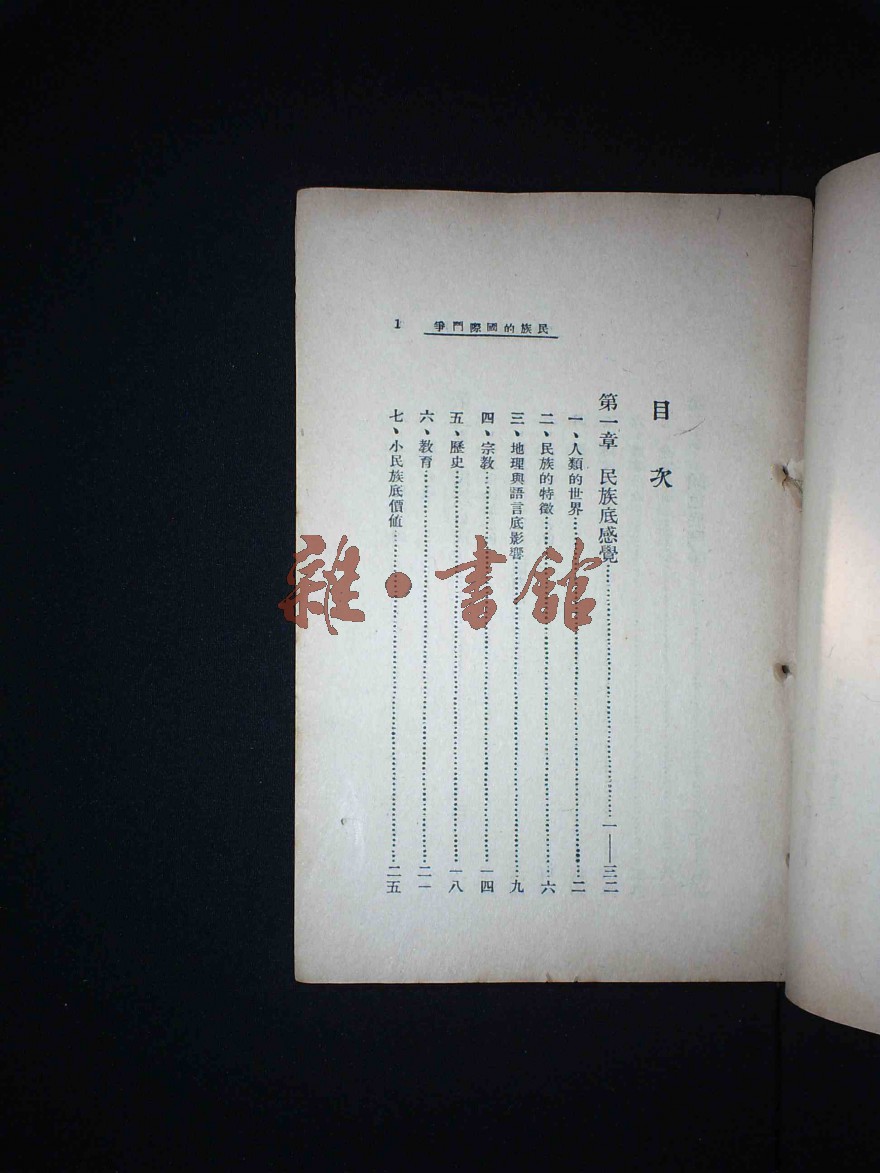 民族的國際鬥爭 1
目次
第一章 民族底感覺……一——三二
一、人類的世界……二
二、民族的特徵……六
三、地理與語言底影響……九
四、宗教……一四
五、歷史……一八
六、教育……二一
七、小民族底價値……二五
雜·書館